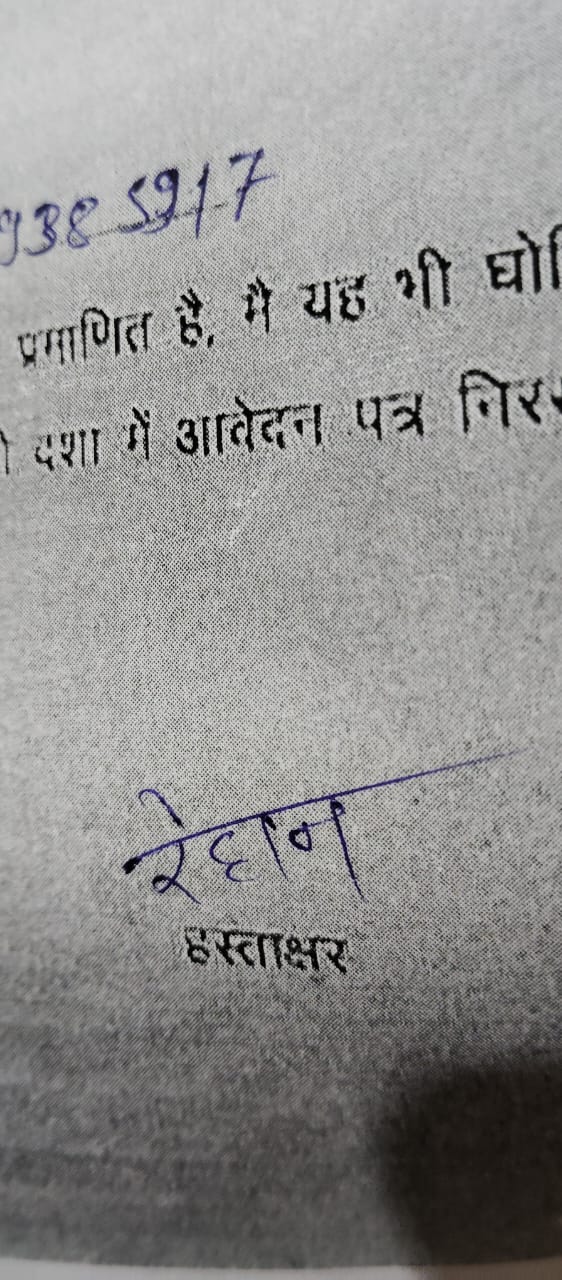 9385917
प्रमाणित है, मै यह भी घोषि
दशा में आवेदन पत्र निरस
रेहान
हस्ताक्षर